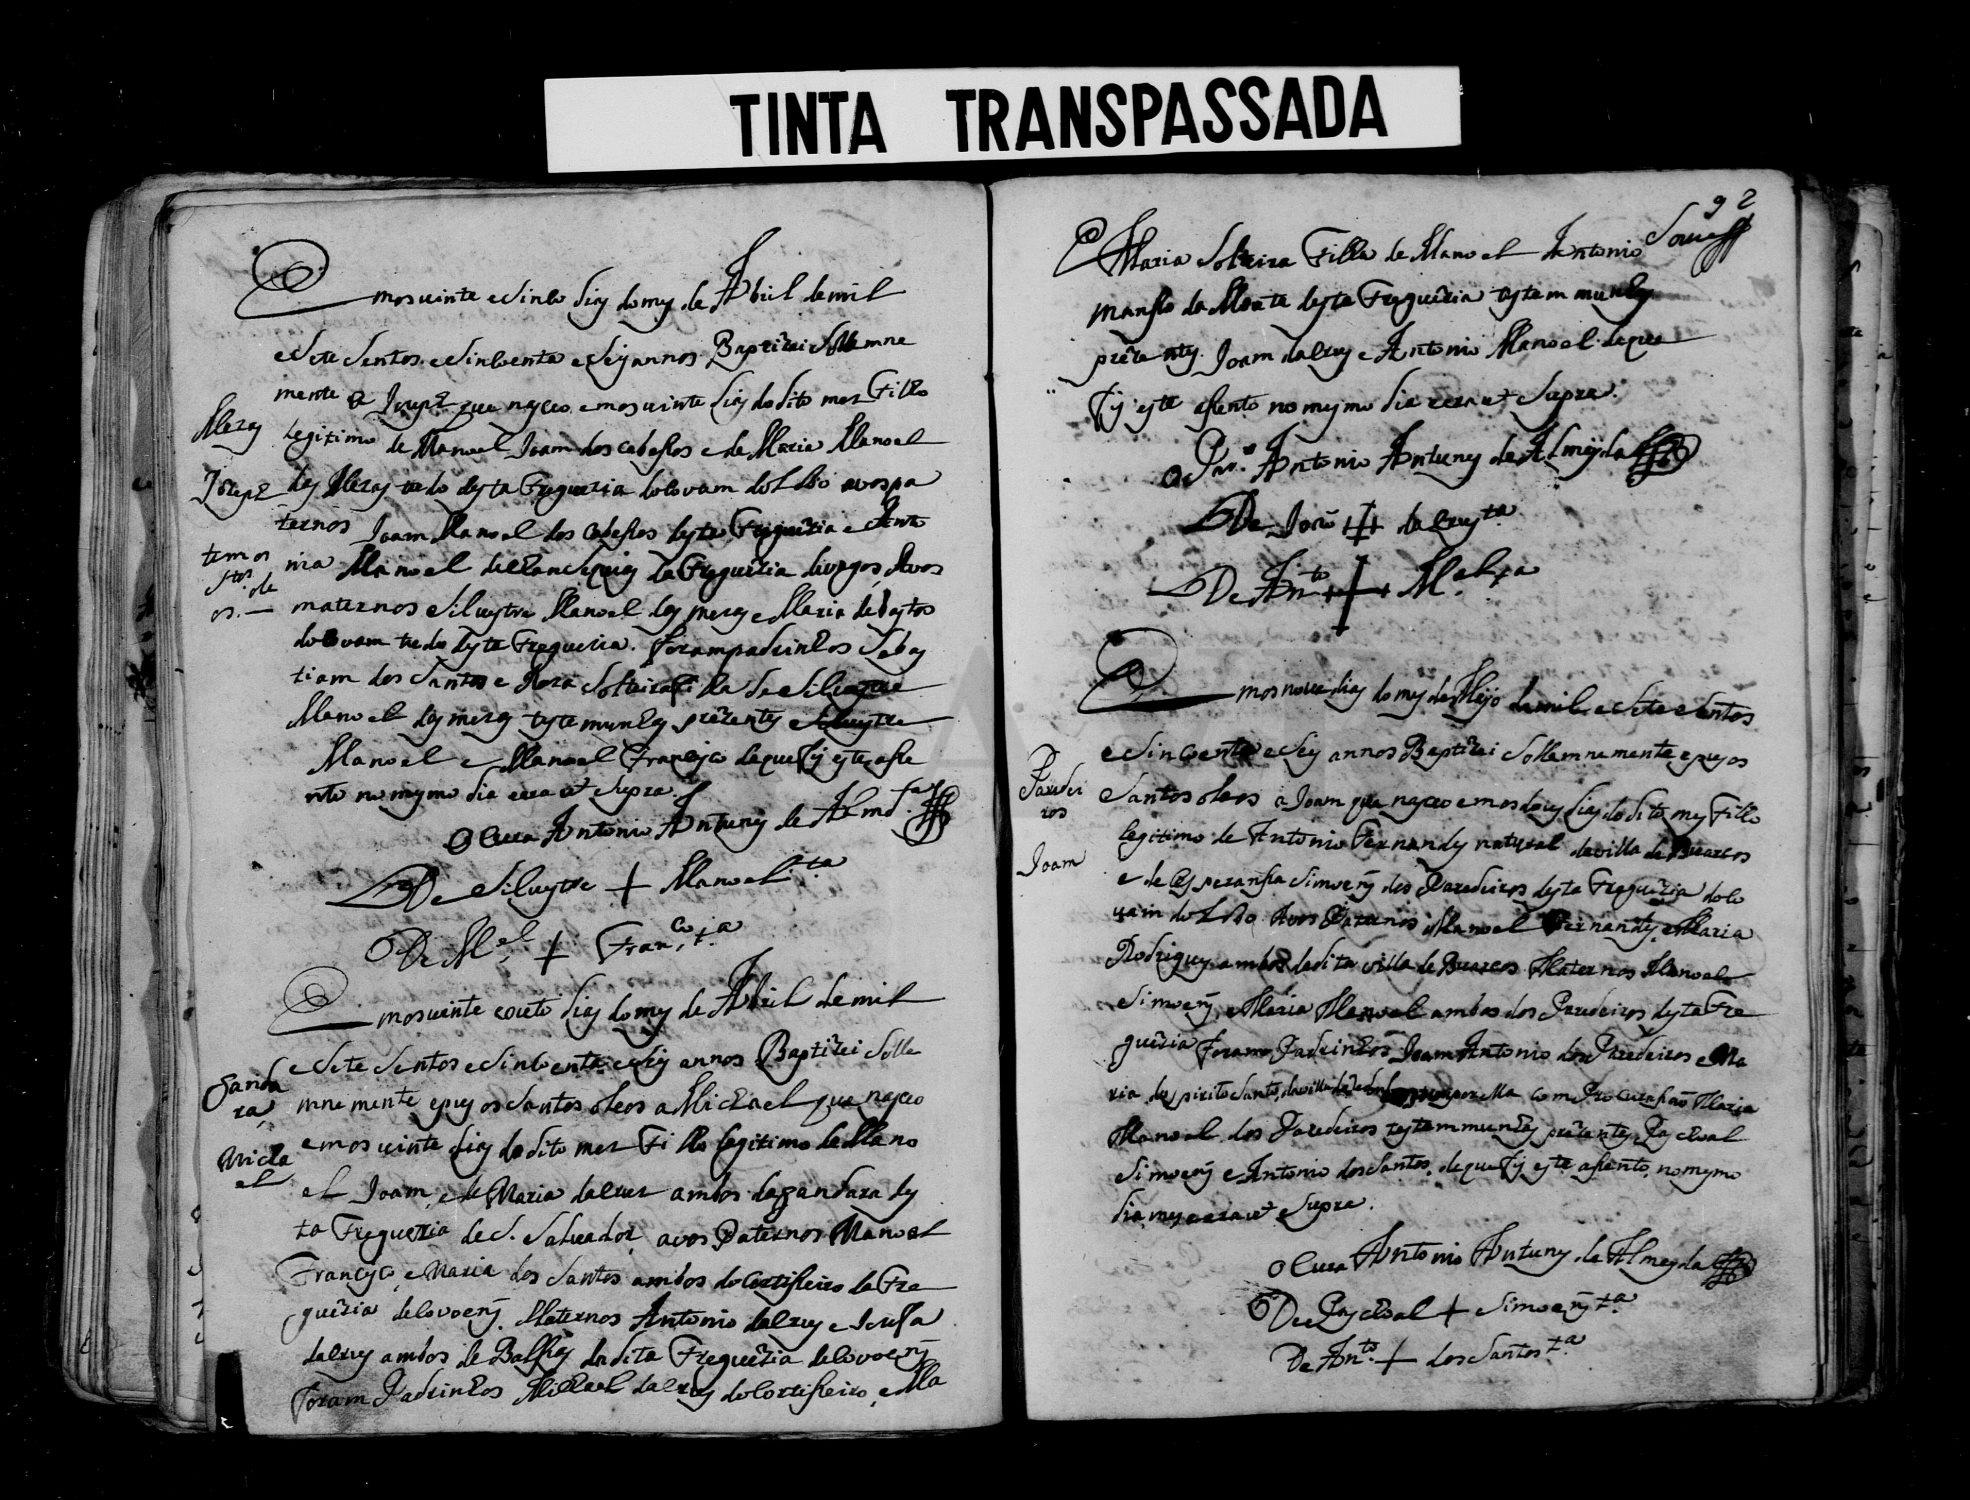 TINTA TRANSPASSADA
Em os uinte e Sinco dias do mes de Abril de mil
e Sete Sentos e Sincoenta e Seis annos Baptizei Sollemne
mente a Jozeph que nasceo em os uinte dias do dito mes Filho
Mezas
legitimo de Manoel Joam dos cabessos e de Maria Manoel
Jozeph
das Mezas tudo desta Freguezia do Couam do Lobo avos pa
ternos Joam Manoel dos Cabessos desta Freguezia e Anto
tem os
nia Manoel da Freguezia de uagos, Avos
Stos. ole
os.
maternos Siluestre Manoel das mezas e Maria de bastos
do Couam tudo desta Freguezia. foram padrinhos Sebas
tiam dos Santos e Roza Solteira fi lha de Siluestre
Manoel das mezas testemunhas prezentes Siluestre
Manoel e Manoel Francisco de que fis este asse
nto no mesmo dia era ut Supra.
O Cura Antonio Antunes de Almda
De Siluestre + Manoel ta
De Mel + Franco ta
Em os uinte e outo dias do mes de Abril de mil
e Sete Sentos e Sincoenta e Seis annos Baptizei Solle
Ganda
ra
mnemente e pus os Santos oleos a Michael que nasceo
em os uinte dias do dito mes Fi lho legitimo de Mano
Micha
el
el Joam, e de Maria da Crus ambos da gandara des
ta Freguezia de S. Saluador, avos Paternos Manoel
Francisco e Maria dos Santos ambos do Cortisseiro da Fre
guezia de Covoens. Maternos Antonio da Crus e Jozefa
da Crus ambos de Balsas da dita Freguezia de Covoens
foram Padrinhos Michael da Crus do Cortisseiro, e Ma
92
Maria Solteira Filha de Manoel Antonio
manso da Moita desta Freguezia testemmunhas
prezentes. Joam da Crus e Antonio Manoel de que
fis este assento no mesmo dia era ut Supra.
O Antonio Antunes de Almeyda
De Joam + da Crus ta
De Anto + Mel ta
Em os noue dias do mes de Mayo de mil e Sete Sentos
e Sincoenta e Seis annos Baptizei Sollemnemente e pus os
Paredei
ros
Santos oleos a Joam que nasceo em os dous dias do dito mes Filho
legitimo de Antonio Fernandes natural da villa de Buarcos
Joam
e de Esperansa Simoens dos Paredeiros desta Freguezia do Co
vam do Lobo Avos Paternos Manoel Fernandes, e Maria
Rodrigues ambos da dita villa de Buarcos Maternos Manoel
Simoens e Maria Manoel ambos dos Paredeiros desta Fre
guezia foram Padrinhos Joam Antonio dos Paredeiros e Ma
ria do spirito Santo, da villa por ella com Procurasam Maria
Manoel dos Paredeiros testemmunhas prezentes Paschoal
Simoens e Antonio dos Santos. de que fis este assento, no mesmo
dia, mes e era ut Supra.
O Cura Antonio Antunes de Almeyda
De Paschoal + Simoens ta
De Anto + dos Santos ta